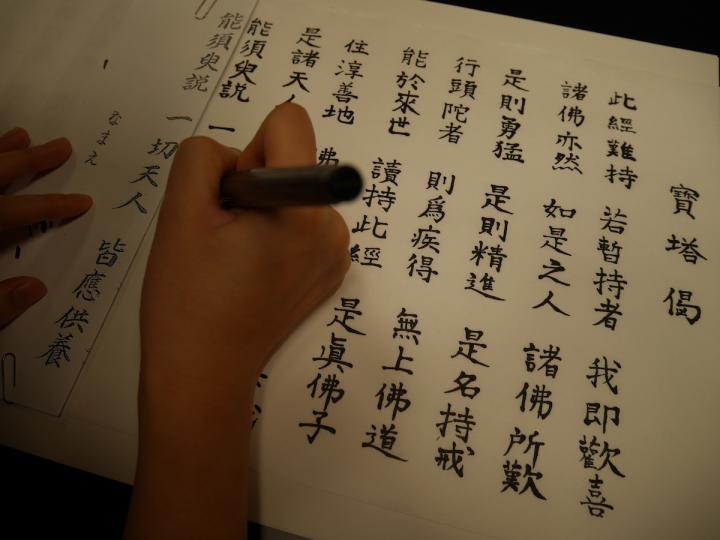 寶塔偈
此經難持 若暫持者 我即歡喜
諸佛亦然 如是之人 諸佛所歎
是則勇猛 是則精進 是名持戒
行頭陀者 則爲疾得 無上佛道
能於來世 讀持此經 是眞佛子
住淳善地 佛
是諸天人
能須臾説 一
能須臾説 一切天人 皆應供養
なまえ